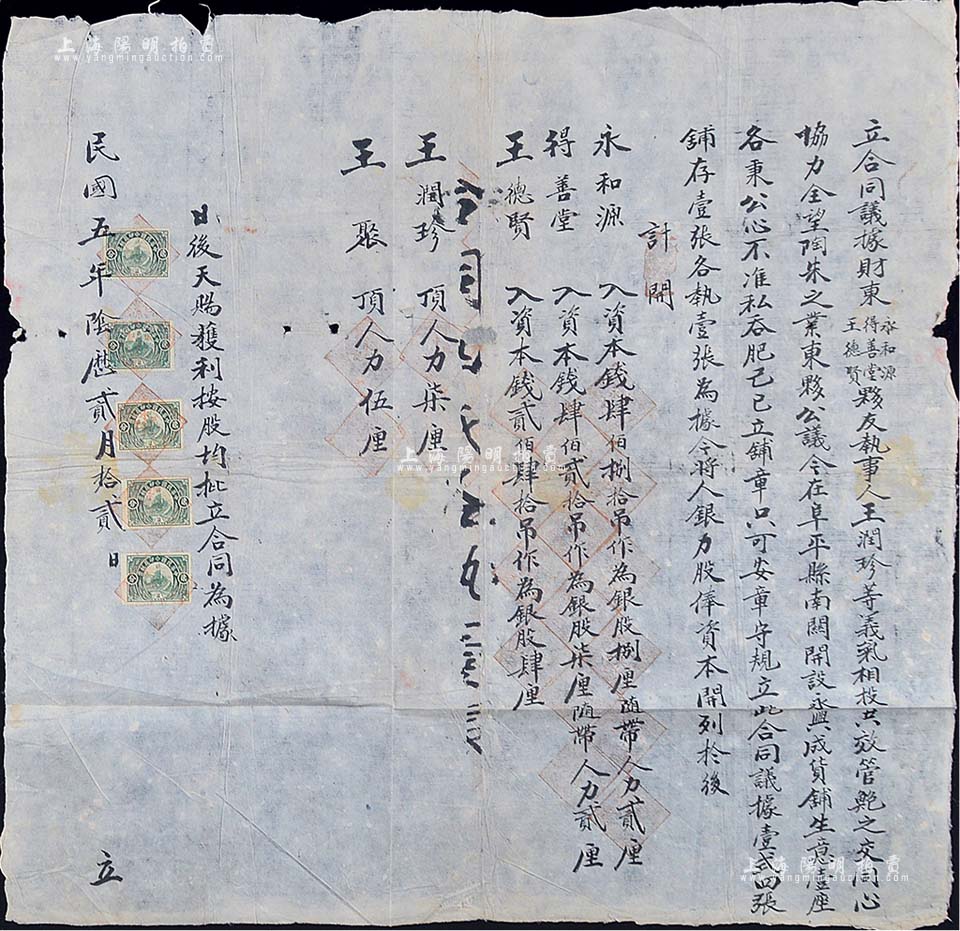 立合同議據財東永和源得善堂王德賢夥友執事人王潤珍等義氣相投共效管鮑之交同心
協力全望陶朱之業東夥公議今在阜平縣南關開設盛興成貨舖生意壹座
各秉公心不准私吞肥己已立舖章只可安章守規立此合同議據壹式四張
舖存壹張各執壹張為據今將人銀力股俸資本開列於後
計開
永和源 入資本錢肆佰捌拾吊作為銀股捌厘隨帶人力貳厘
得善堂 入資本錢肆佰貳拾吊作為銀股柒厘隨帶人力貳厘
王德賢 入資本錢貳佰肆拾吊作為銀股肆厘
王潤珍 頂人力柒厘
王聚 頂人力伍厘
日後天賜獲利按股均批立合同為據
民國五年陰歷貳月拾貳日 立
上海陽明拍賣
www.yangmingauction.com
上海陽明拍賣
www.yangmingauction.com
上海陽明拍賣
www.yangmingauction.com